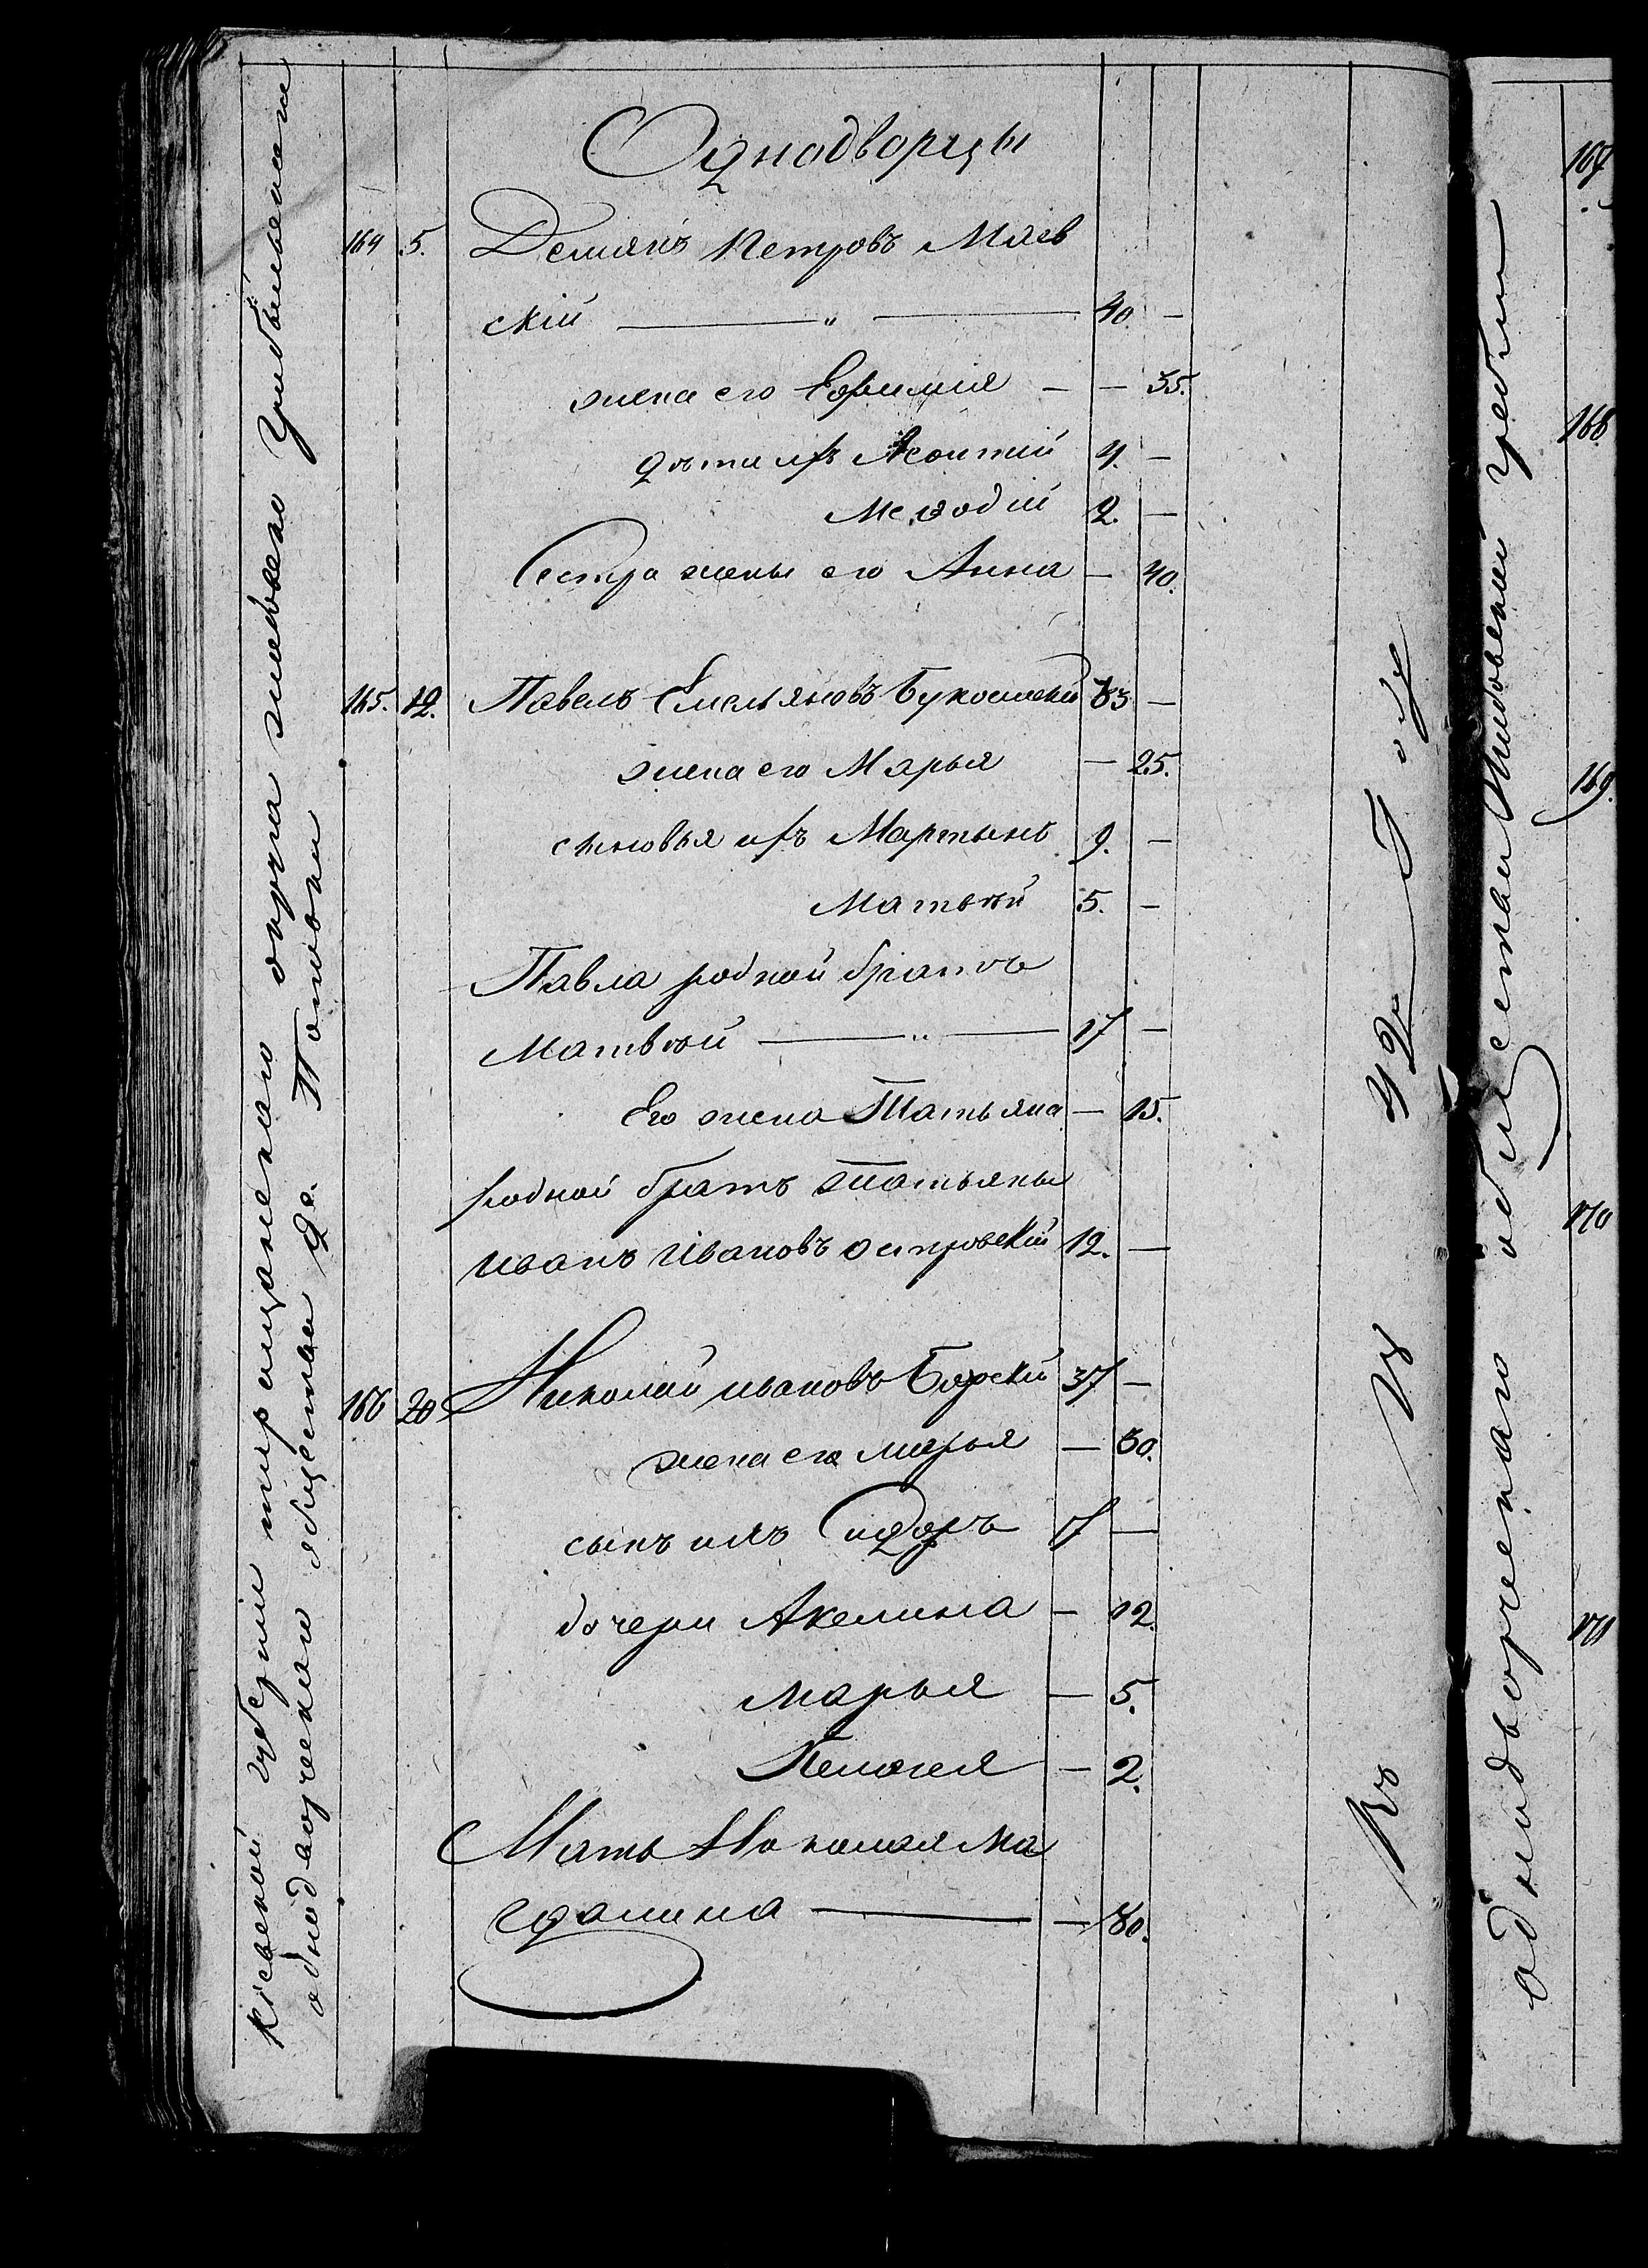 Однодворцы
164 5. Демянъ Петровъ Маев
скій 40 —
жена его Ефимия — — 35.
дѣти ихъ Леонтій 4. —
Меѳодій 2. —
Сестра жены его Анна — 40.
165. 12. Павелъ Емельяновъ 33 —
жена его Марья — 25.
сыновья ихъ Мартынъ 9. —
Матвѣй 5. —
Павла родной братъ
Матвѣй 17 —
Его жена Татьяна — 15.
родной братъ Татьяны
Иванъ Ивановъ Островскій 12. —
166 20 Николай Ивановъ Борскій 37 —
жена его Марья — 30.
сынъ ихъ Сидоръ 17 —
дочери Акелина — 12.
Марья — 5.
Пелагея — 2.
Мать Николая Ма
гдалина — 80.
Кіевской губерніи округа
однодворческаго общества
Въ
однодворческаго общества
167
168
169.
170
171